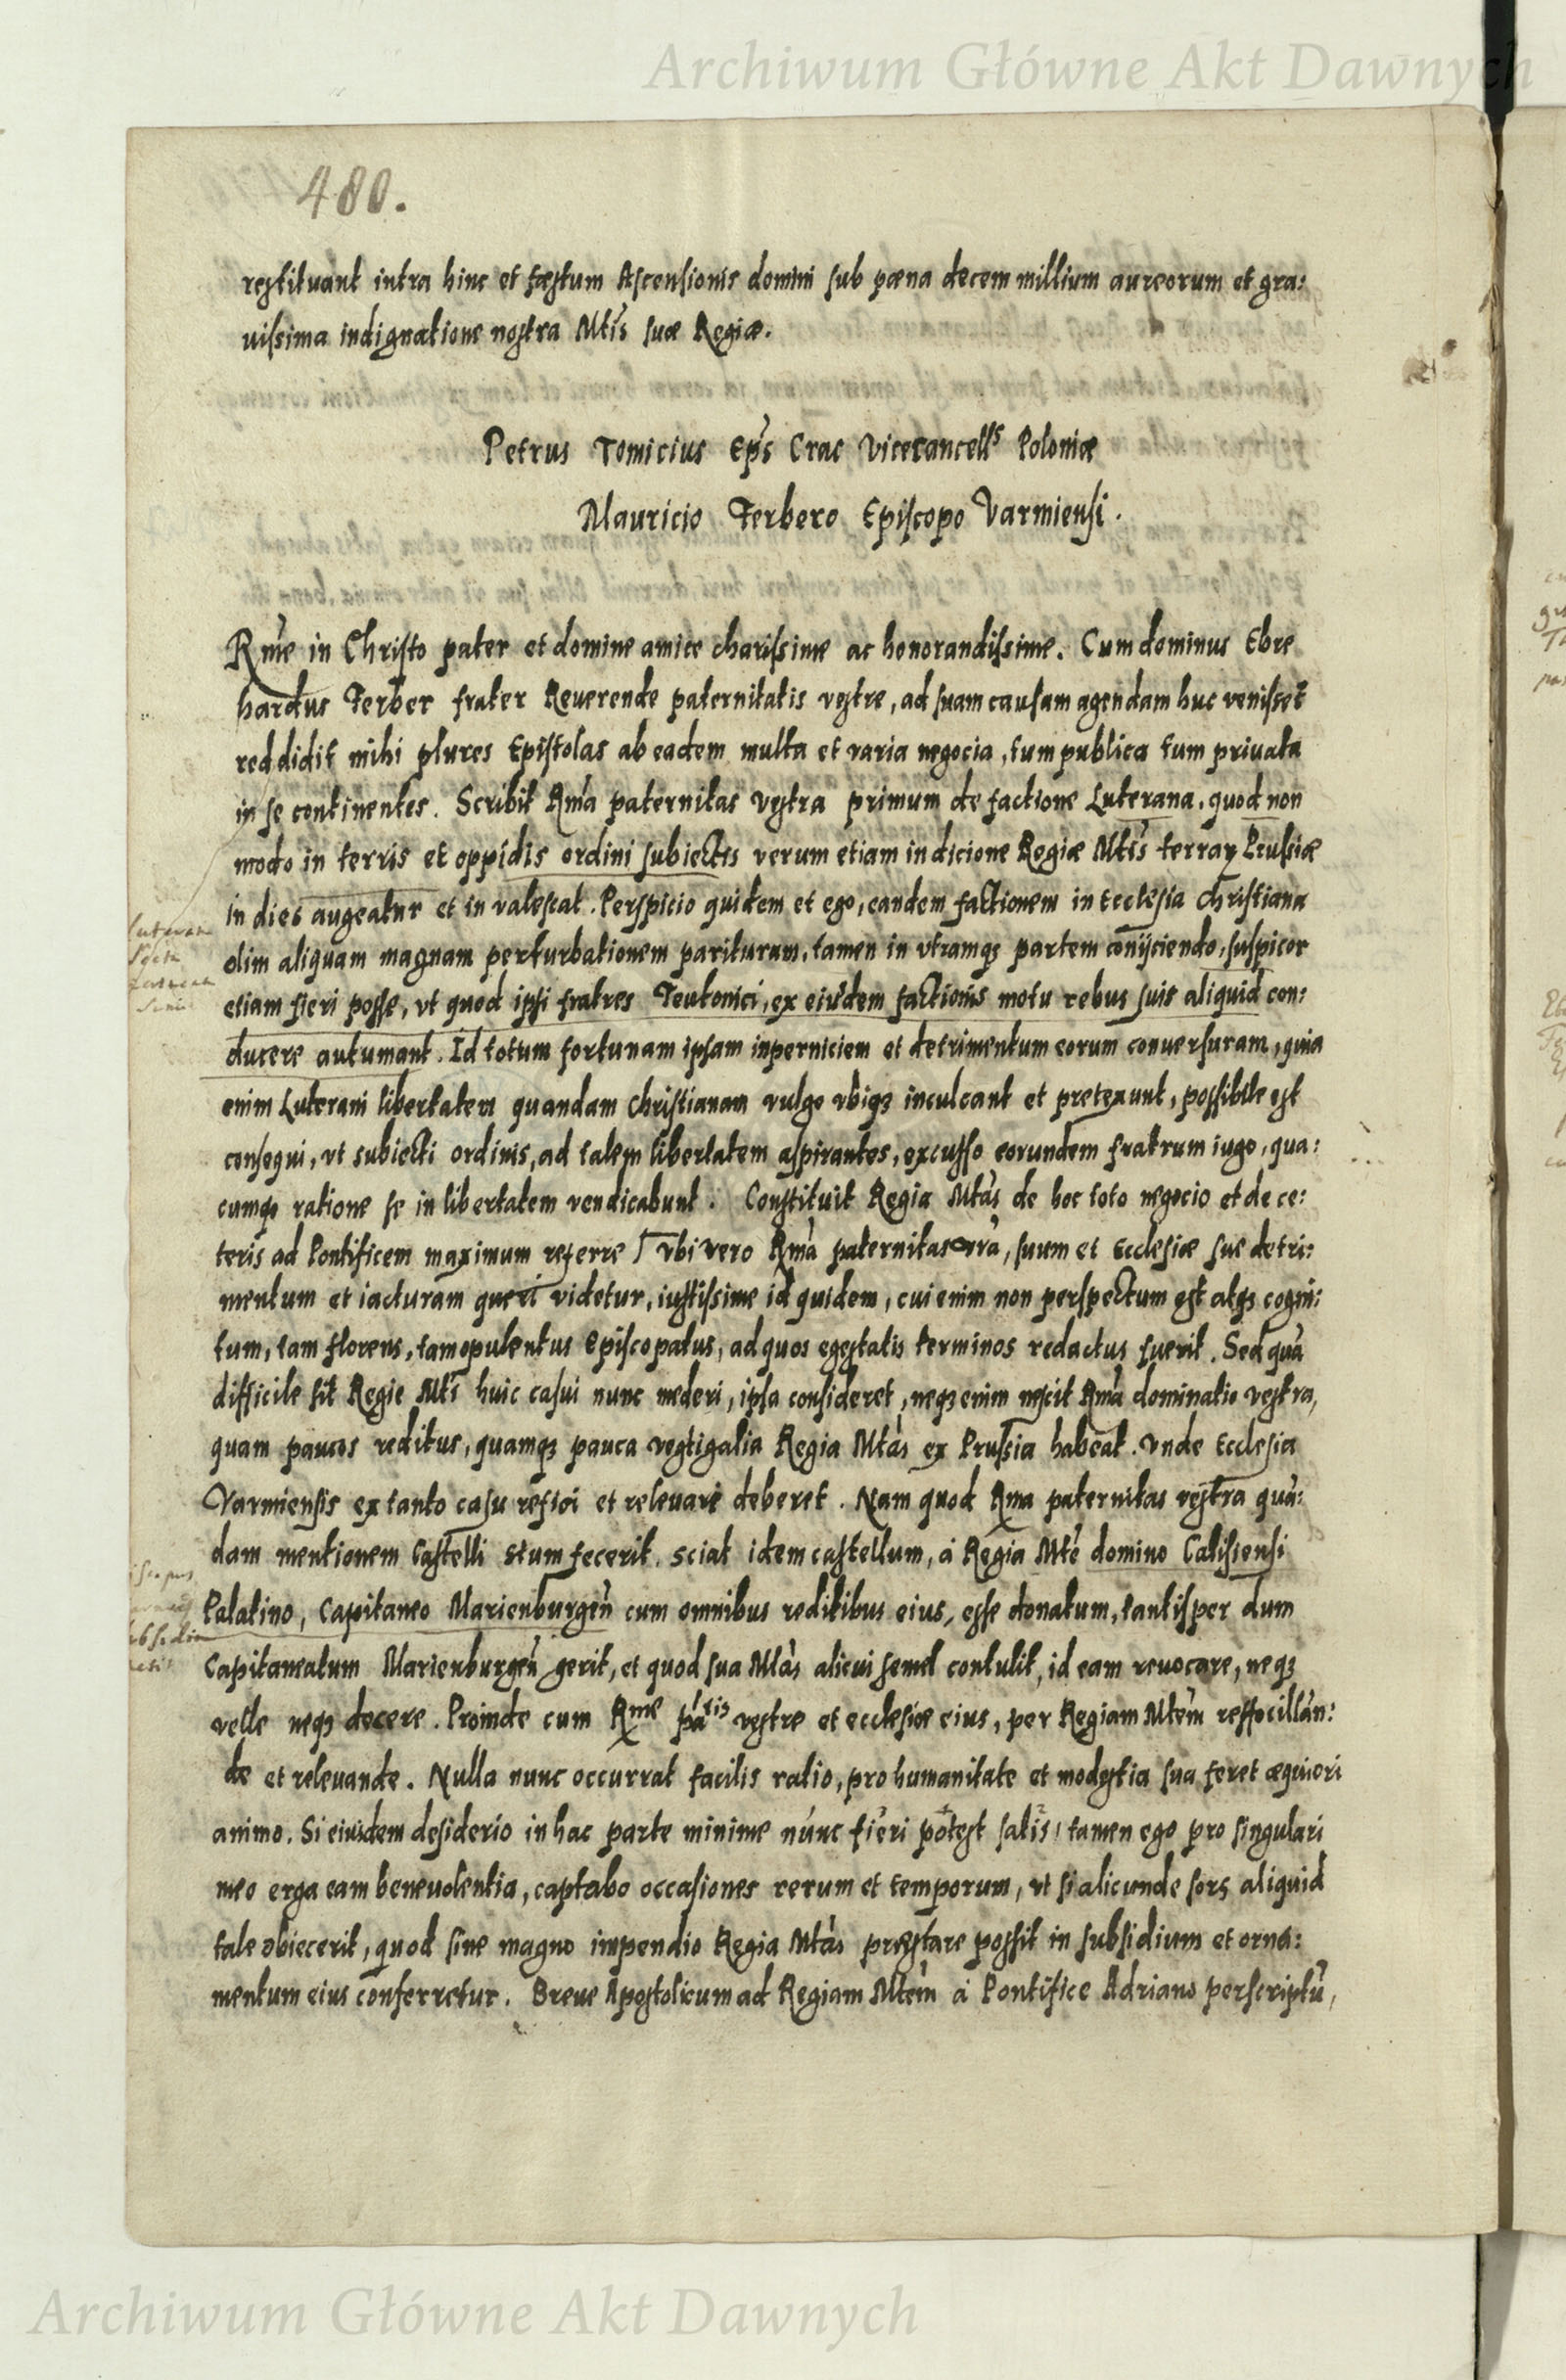 Archiwum Główne Akt Dawnych
480.
restituant intra hinc et fæstum Ascensionis domini sub pæna decem millium aureorum et gra:
uissima indignatione nostra Mtis suæ Regiæ.
Petrus Tomicius Eps Crac Vicecancells Poloniæ
Mauricio Ferbero Episcopo Varmiensi.
Rme in Christo pater et domine amice charissime ac honorandissime. Cum dominus Ebre
hardus Ferber frater Reuerende paternitatis vestre, ad suam causam agendam huc venisset
reddidit mihi plures Epistolas ab eadem multa et varia negocia, tum publica tum priuata
in se continentes. Scribit Rma paternitas vestra primum de factione Luterana, quod non
modo in terris et oppidis ordini subiectis verum etiam in dicione Regiæ Mtis terrarꝫ Prussiæ
in dies augeatur et in valescat. Perspicio quidem et ego, eandem factionem in Ecclesia Christiana
olim aliquam magnam perturbationem parituram, tamen in vtramqꝫ partem conijciendo, suspicor
etiam fieri posse, vt quod ipsi fratres Teutonici, ex eiusdem factionis motu rebus suis aliquid con:
ducere autumant. Id totum fortunam ipsam inperniciem et detrimentum eorum conuersuram, quia
enim Luterani libertatem quandam christianam vulgo vbiqꝫ inculcant et pretexunt, possibile est
consequi, vt subiecti ordinis, ad talem libertatem aspirantes, excusso eorundem fratrum iugo, qua:
cumqꝫ ratione se in libertatem vendicabunt. Constituit Regia Mtas de hoc toto negocio et de ce:
teris ad Pontificem maximum referre / vbi vero Rma paternitas vra, suum et Ecclesiæ suæ detri:
mentum et iacturam queri videtur, iustissime id quidem, cui enim non perspectum est atqꝫ cogni:
tum, tam florens, tam opulentus Episcopatus, ad quos egestatis terminos redactus fuerit. Sed quā
difficile sit Regie Mti huic casui nunc mederi, ipsa consideret, neqꝫ enim nescit Rma dominatio vestra,
quam paucos reditus, quamqꝫ pauca vegtigalia Regia Mtas ex Prussia habeat. Vnde Ecclesia
Varmiensis ex tanto casu refici et releuari deberet. Nam quod Rma paternitas vestra quā:
dam mentionem Castelli Stum fecerit, sciat idem castellum, à Regia Mte domino Calisiensi
Palatino, Capitaneo Marienburgeñ cum omnibus reditibus eius, esse donatum, tantisper dum
Capitaneatum Marienburgeñ gerit, et quod sua Mtas alicui semel contulit, id eam reuocare, neqꝫ
velle neqꝫ decere. Proinde cum Rme patis vestre et ecclesiæ eius, per Regiam Mtem reffocillan:
de et releuande. Nulla nunc occurrat facilis ratio, pro humanitate et modestia sua feret æquiori
animo. Si eiusdem desiderio in hac parte minime nunc fieri potest satis, tamen ego pro singulari
meo erga eam beneuolentia, captabo occasiones rerum et temporum, vt si alicunde sors aliquid
tale obiecerit, quod sine magno impendio Regia Mtas præstare possit in subsidium et orna:
mentum eius conferretur. Breue Apostolicum ad Regiam Mtem à Pontifice Adriano perscriptū,
Archiwum Główne Akt Dawnych